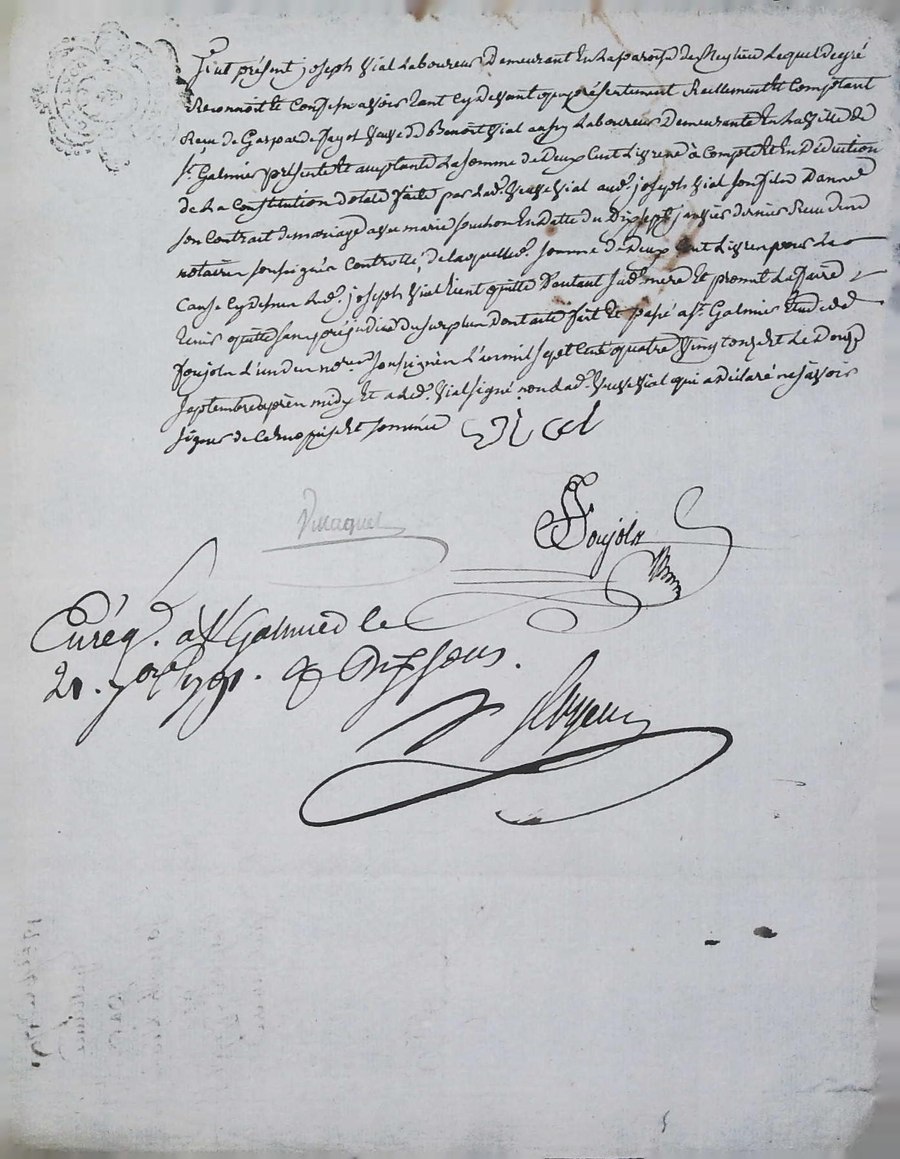 Fut présent joseph Vial Laboureur Demeurant En La paroisse de Lequel de gré
Reconnoit Et Confesse avoir tant Cy devant que présentement Réellement Et Comptant
Reçu de Gasparde Jayot Veuve de Benoit Vial aussy Laboureur Demeurante En La Ville de
St. Galmier présente Et acceptante La somme de Deux Cent Livres à Compte Et En Déduction
de La Constitution dotale faite par Lade. Veuve Vial aud. joseph Vial son fils Dans
son Contrat de mariage avec marie Souchon En Datte du Dix sept janvier dernier Reçu
notaires soussignés Controllé, de laquelle de. somme de Deux Cent Livres pour La
Cause Cy dessus Led. joseph Vial tient quitte D'autant Sade. mere Et promet La faire
tenir quitte sans préjudice du surplus dont acte fait Et passé a St. Galmier Etude de
Soujols L'un des nores. soussignés L'an mil sept Cent quatre Vingt onze Et Le Douze
Septembre après midy Et a Led. Vial signé non Lade. Veuve Vial qui a Déclaré ne savoir
signer de Ce Enquise Et sommée Vial
Soujols
Enrég. a St Galmier le
21. 7bre 1791. quinze sous.